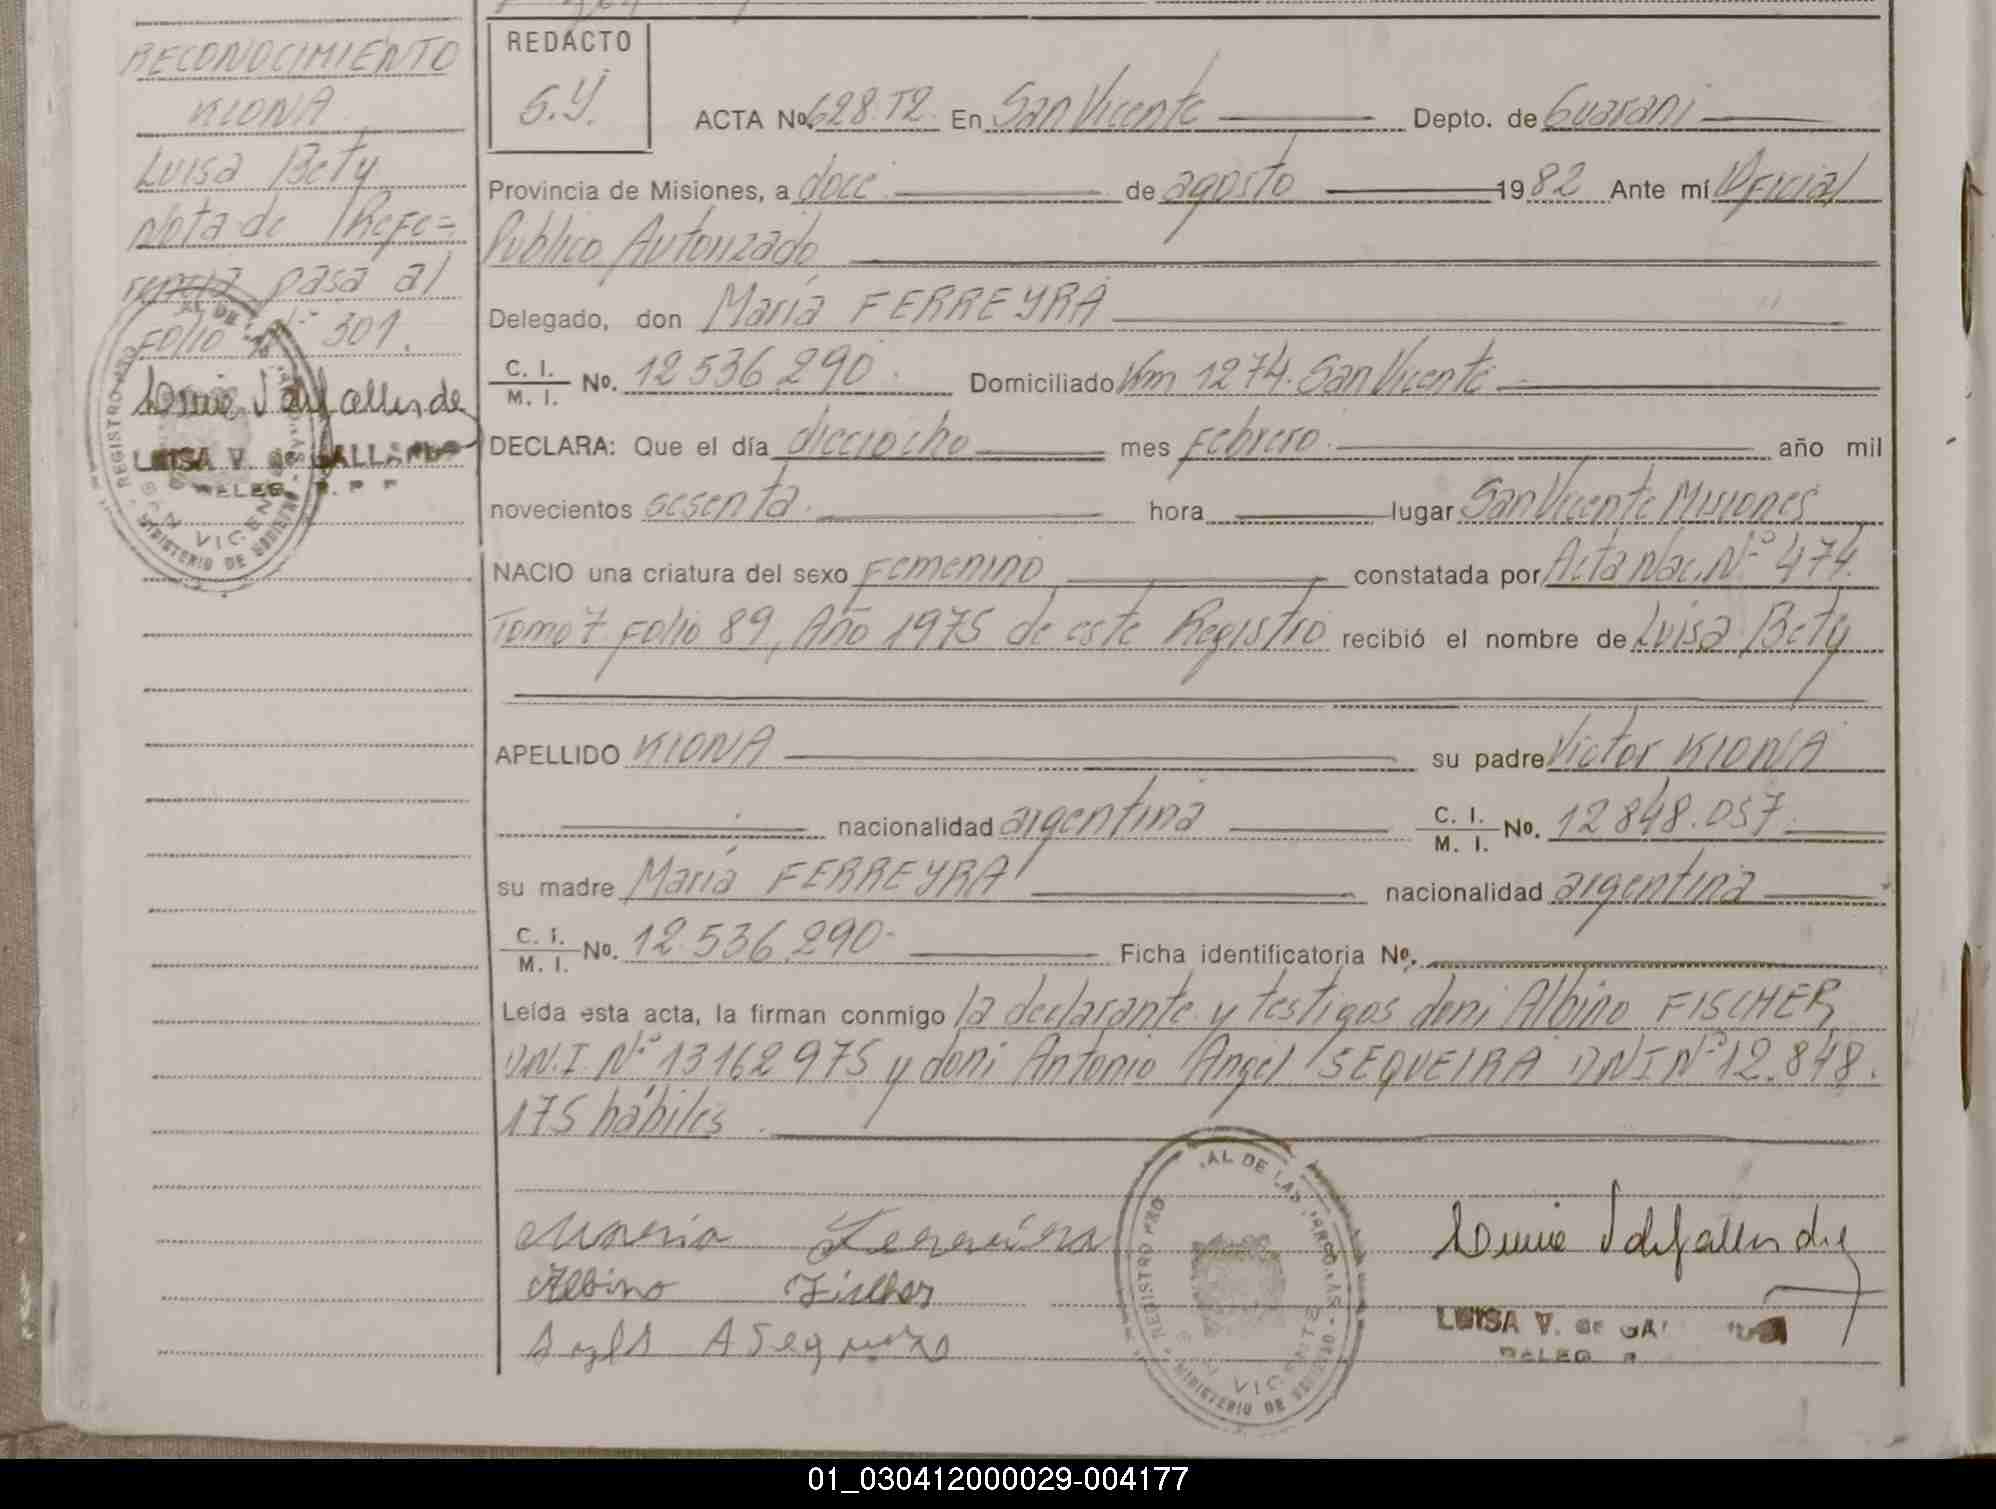 RECONOCIMIENTO
KIONA
Luisa Bety
Nota de Refe=
rencia pasa al
Folio Nº 301.
LUISA V. de GALLARDO
DELEG. R. P. P
REGISTRO PRO AL DE LAS PERSONAS
SAN VICENTE
MINISTERIO DE GOBIERNO
REDACTO
S.Y.
ACTA No. 628.T2. En San Vicente Depto. de Guaraní
Provincia de Misiones, a doce de agosto 1982 Ante mí Oficial
Publico Autorizado
Delegado, don María FERREYRA
C. I. / M. I. No. 12 536 290. Domiciliado Km 1274. San Vicente
DECLARA: Que el día dieciocho mes Febrero. año mil
novecientos sesenta. hora lugar San Vicente Misiones
NACIO una criatura del sexo Femenino constatada por Acta Nac. Nº 474.
Tomo 7 Folio 89, Año 1975 de este Registro recibió el nombre de Luisa Bety
APELLIDO KIONA su padre Victor KIONA
nacionalidad argentina C. I. / M. I. No. 12 848.057.
su madre María FERREYRA nacionalidad argentina
C. I. / M. I. No. 12.536.290- Ficha identificatoria No.
Leída esta acta, la firman conmigo la declarante y testigos don: Albino FISCHER
D.N.I. Nº 13162975 y don: Antonio Angel SEQUEIRA DNI Nº 12.848.
175 hábiles.
Maria Ferreira
Albino Fischer
A Sequeira
REGISTRO PRO AL DE LAS PERSONAS
VICENTE
MINISTERIO DE GOBIERNO
LUISA V. de GA
DELEG
01_030412000029-004177